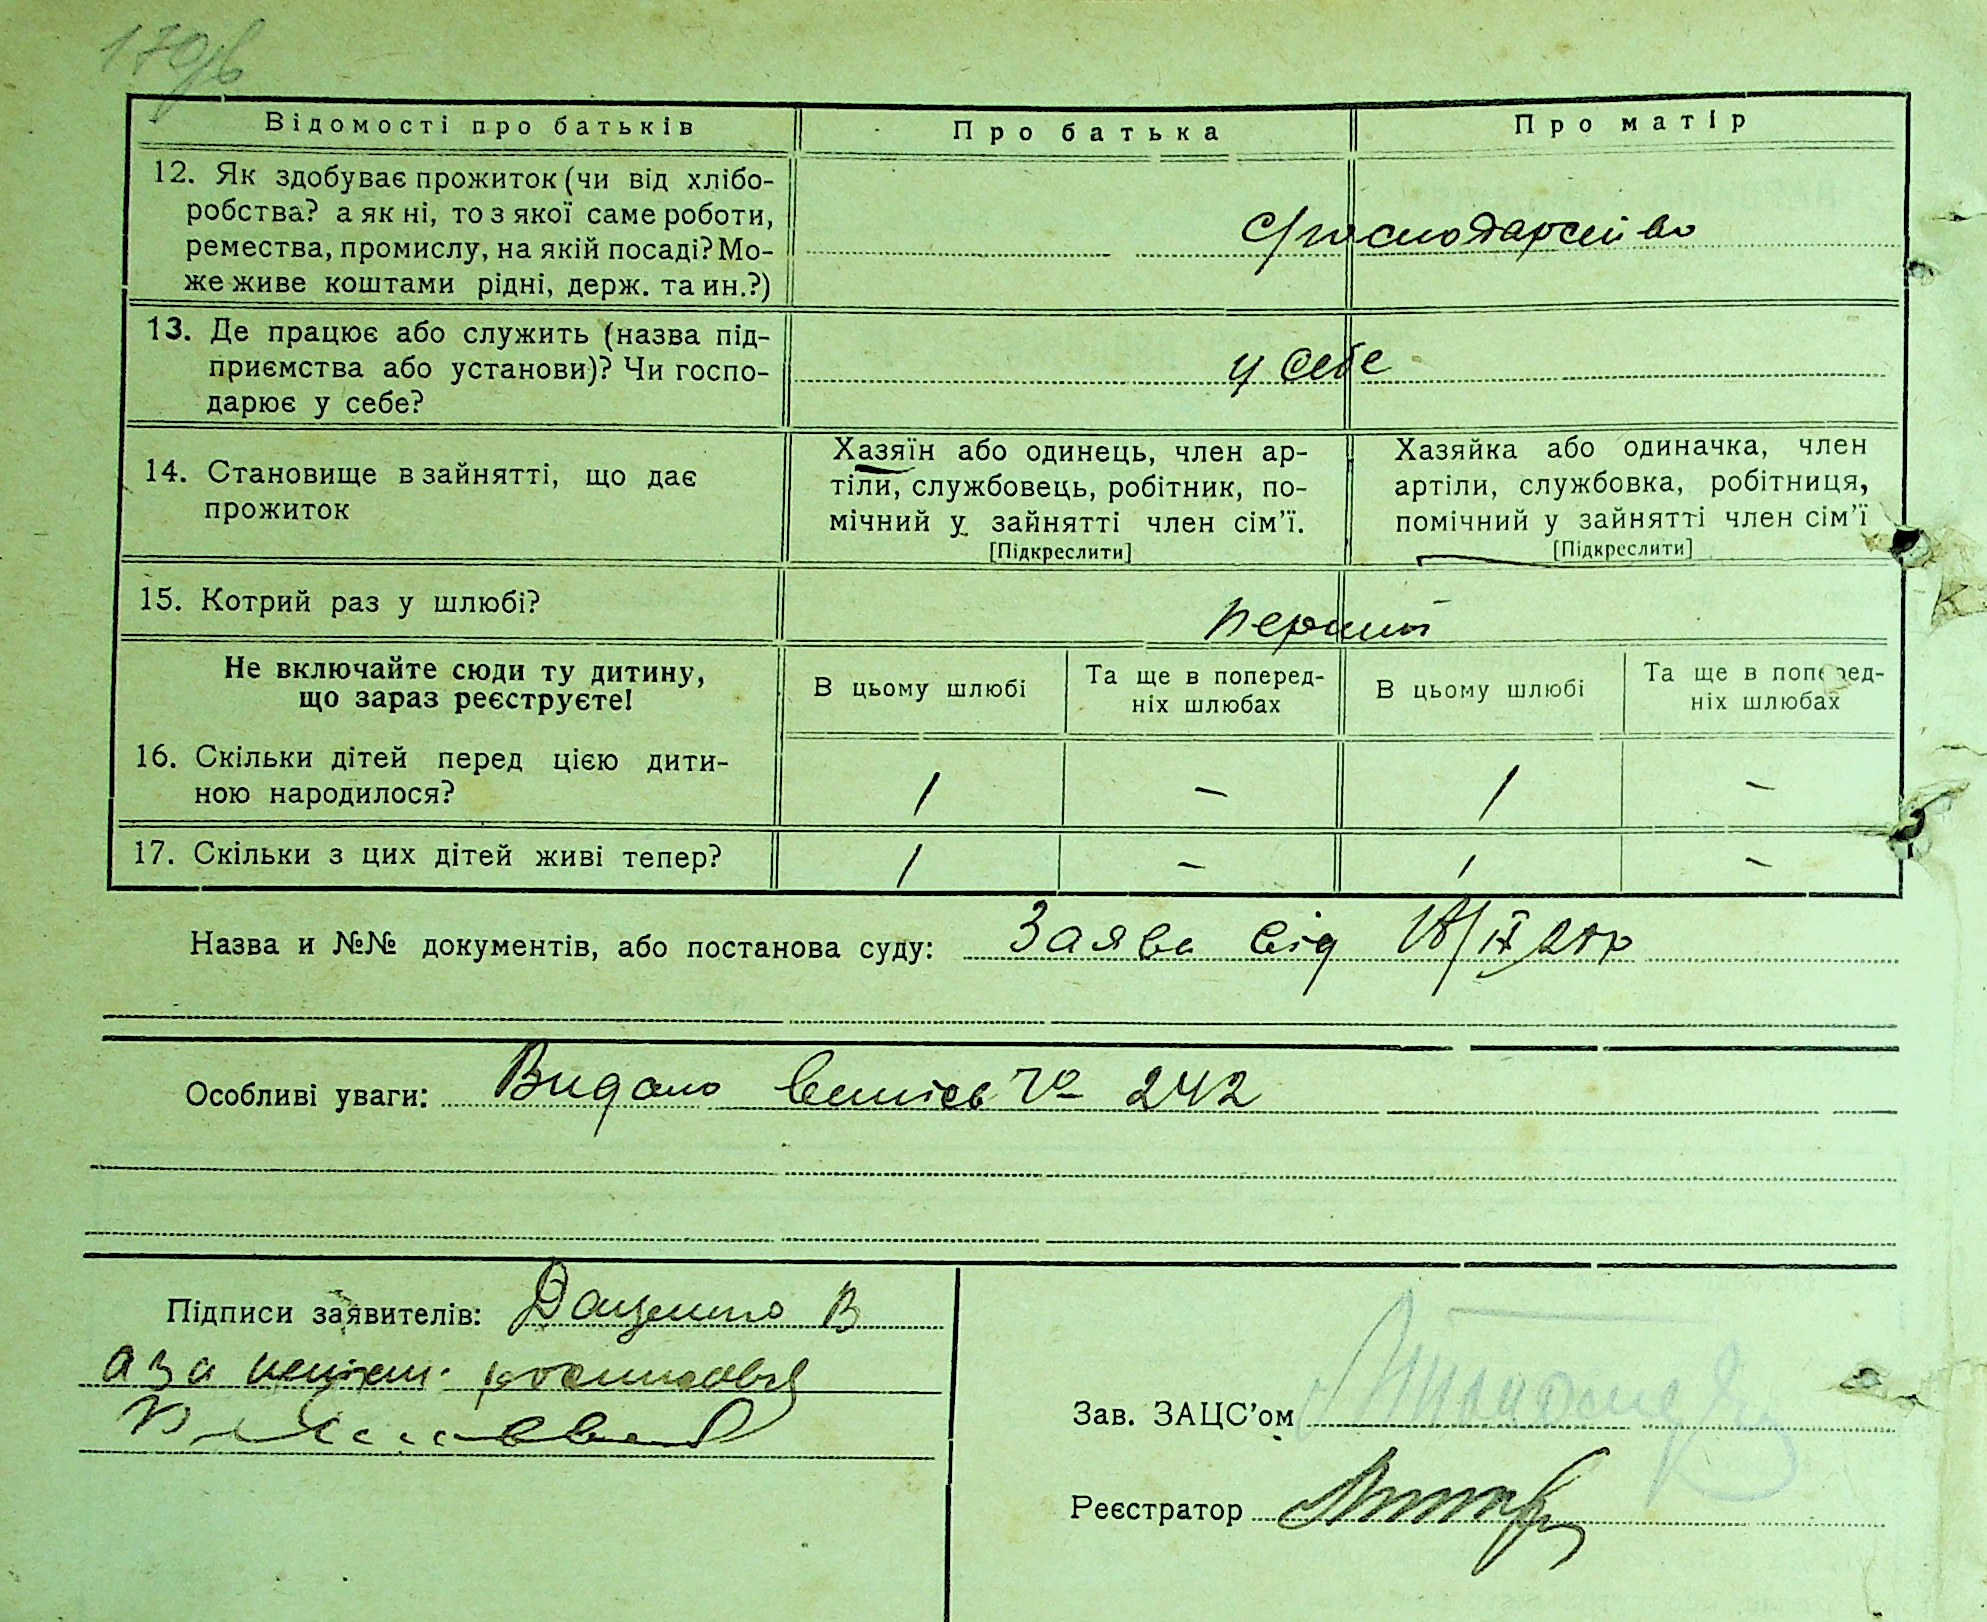 Відомості про батьків Про батька Про матір
12. Як здобуває прожиток (чи від хлібо-
робства? а як ні, то з якої саме роботи,
ремества, промислу, на якій посаді? Мо-
же живе коштами рідні, держ. та ин.?)
с/господарство
13. Де працює або служить (назва під-
приємства або установи)? Чи госпо-
дарює у себе?
у себе
14. Становище в зайнятті, що дає
прожиток
Хазяїн або одинець, член ар-
тіли, службовець, робітник, по-
мічний у зайнятті член сім’ї.
[Підкреслити]
Хазяйка або одиначка, член
артіли, службовка, робітниця,
помічний у зайнятті член сім’ї
[Підкреслити]
15. Котрий раз у шлюбі?
перший
Не включайте сюди ту дитину,
що зараз реєструєте!
В цьому шлюбі
Та ще в поперед-
ніх шлюбах
В цьому шлюбі
Та ще в поперед-
ніх шлюбах
16. Скільки дітей перед цією дити-
ною народилося?
1 – 1 –
17. Скільки з цих дітей живі тепер?
1 – 1 –
Назва и №№ документів, або постанова суду: Заява від
Особливі уваги: Видано випись № 242
Підписи заявителів: Даценко В
а за розписався
Зав. ЗАЦС’ом
Реєстратор